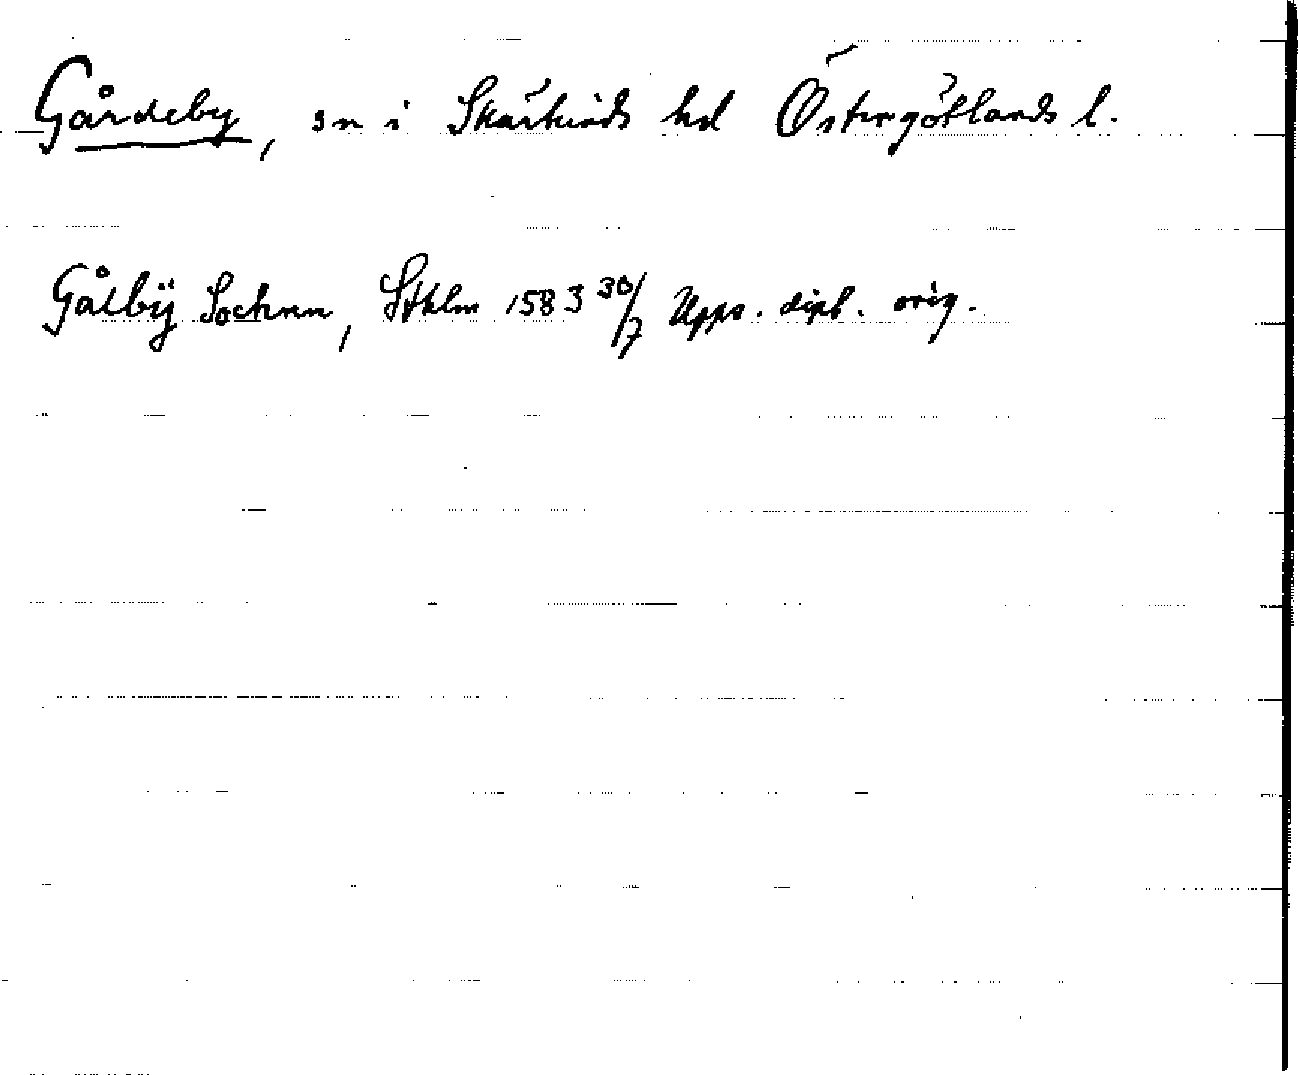 Gårdeby, sn i Skärkinds hd Östergötlands l.
Gålbÿ Sochnn, Sthlm 1583 30/7 Upps. dipl. orig.